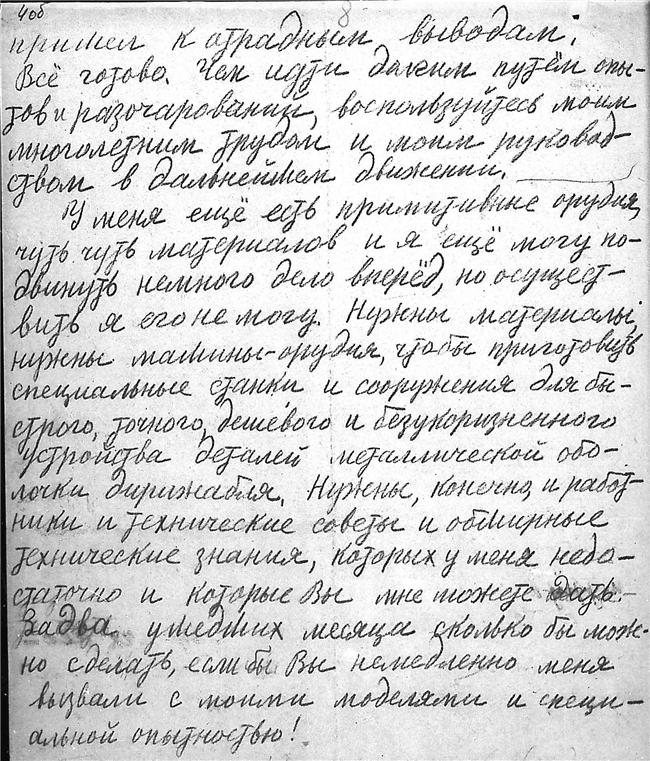 4об
8
пришел к отрадным выводам.
Всё готово. Чем идти таким путём опы-
тов и разочарований, воспользуйтесь моим
многолетним трудом и моим руковод-
ством в дальнейшем движении.
У меня ещё есть примитивные орудия,
чуть чуть материалов и я ещё могу по-
двинуть немного дело вперёд, но осущест-
вить я его не могу. Нужны материалы,
нужны машины-орудия, чтобы приготовить
специальные станки и сооружения для бы-
строго, точного, дешевого и безукоризненного
устройства деталей металлической обо-
лочки дирижабля. Нужны, конечно, и работ-
ники и технические советы и обширные
технические знания, которых у меня недо-
статочно и которые Вы мне можете дать.
За два ушедших месяца сколько бы мож-
но сделать, если бы Вы немедленно меня
вызвали с моими моделями и специ-
альной опытностью!